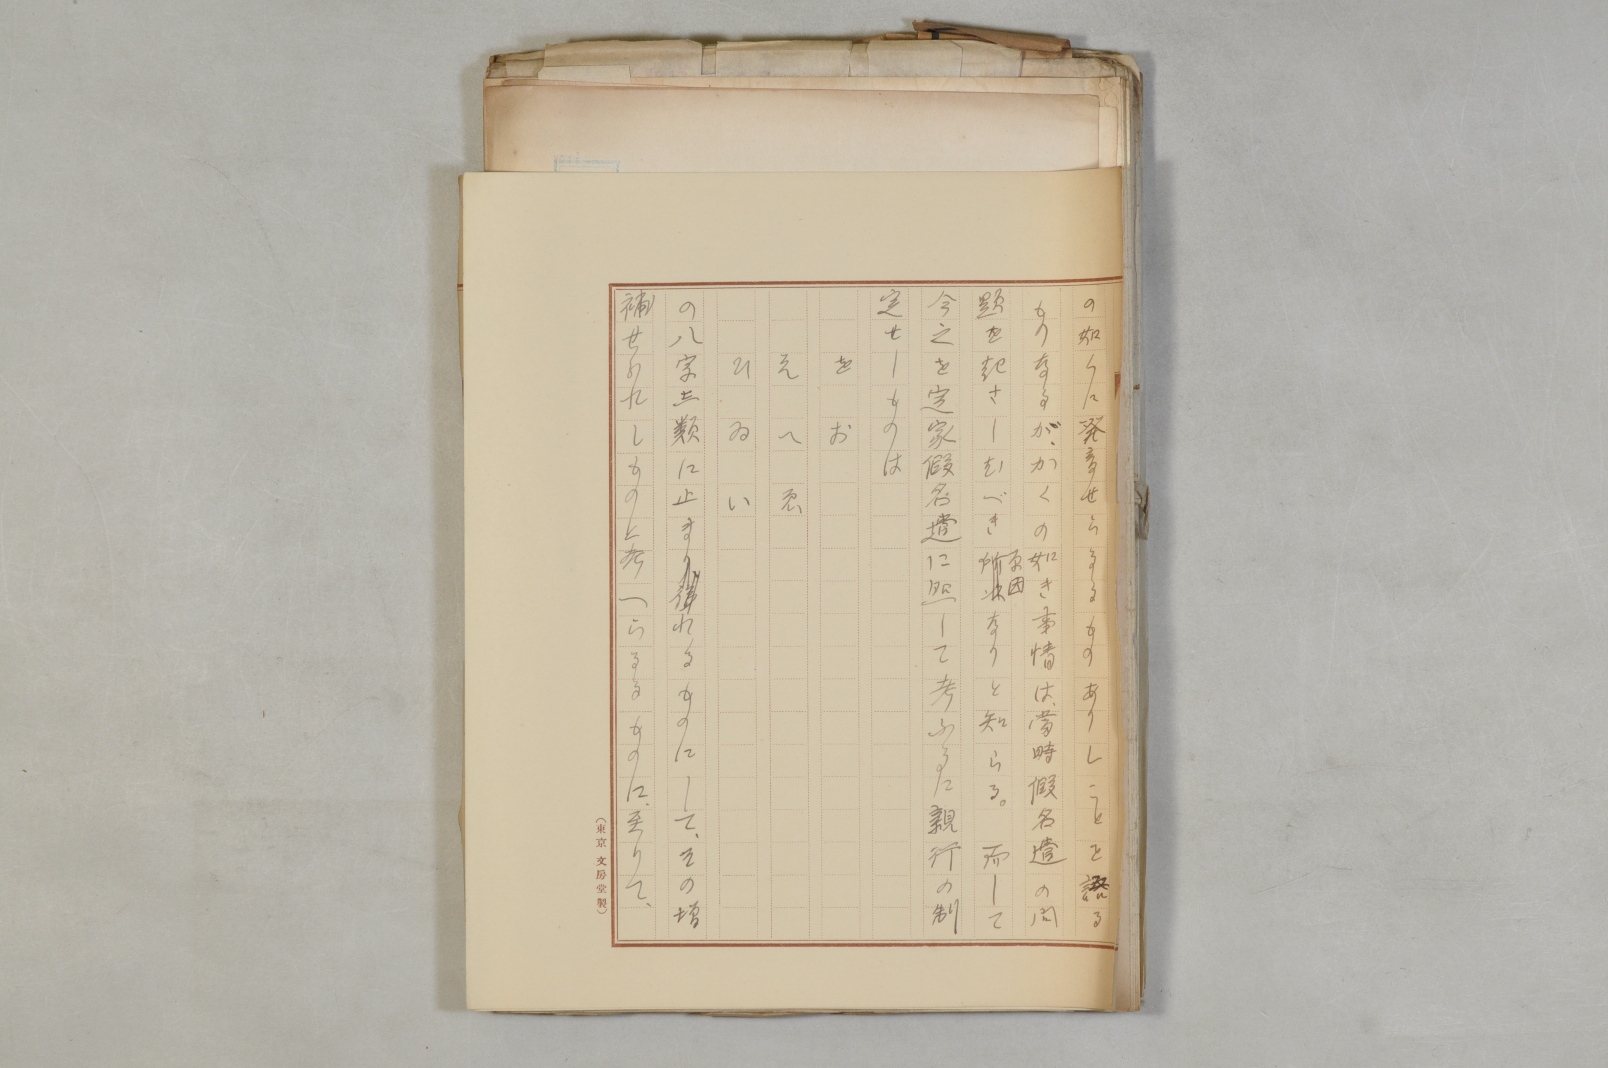 の如くに発音せらるるものありしことを語る
ものなるが、かくの如き事情は、当時假名遣の問
題を起さしむべき原因なりと知らる。而して
今之を定家假名遣に照して考ふるに親行の制
定せしものは
を お
え へ ゑ
ひ ゐ い
の八字三類に止まれるものにして、その増
補せられしものと考へらるるものに至りて、
(東京 文房堂製)